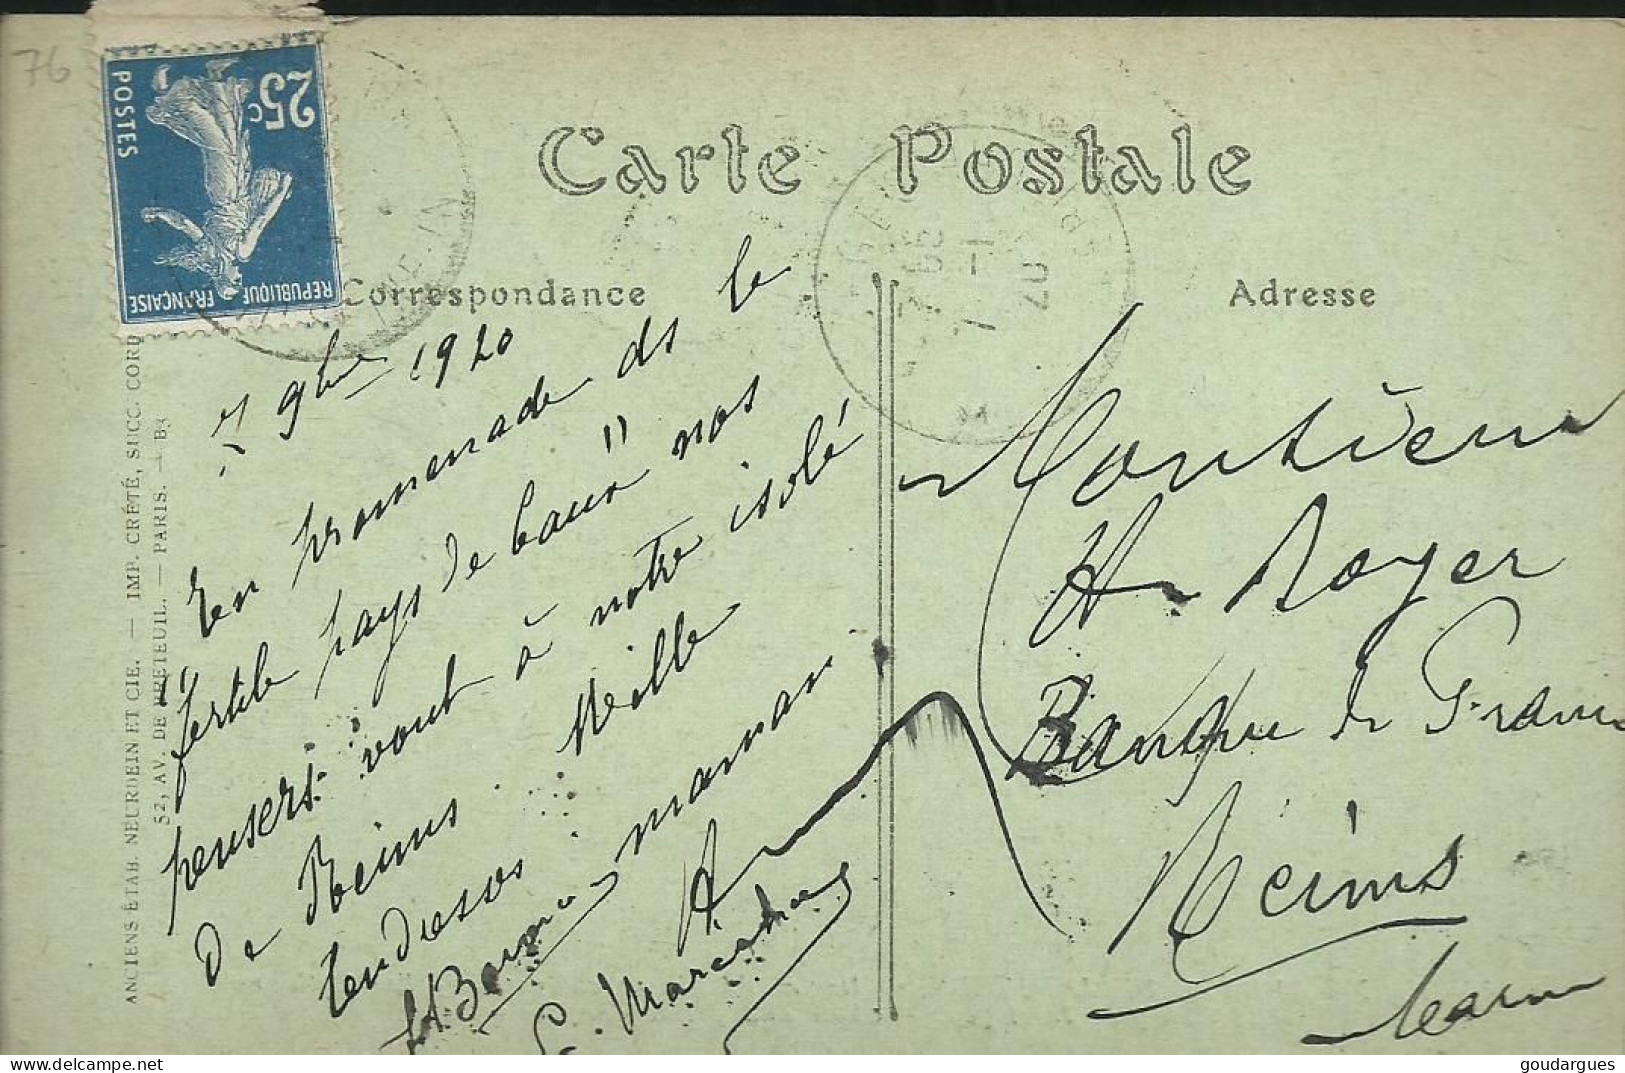 76
25c
POSTES
REPUBLIQUE FRANÇAISE
Carte Postale
Correspondance
Adresse
ANCIENS ÉTAB. NEURDEIN ET CIE. — IMP. CRÉTÉ, SUCC. CORB
52, AV. DE BRETEUIL. — PARIS. — B3
7 9bre 1920
En promenade ds le
fertile pays de Caux" nos
pensers vont à notre isolé
de Reims. Mille
tendresses. maman
Monsieur
H Royer
Banque de France
Reims
Marne
delcampe.net
goudargues.com